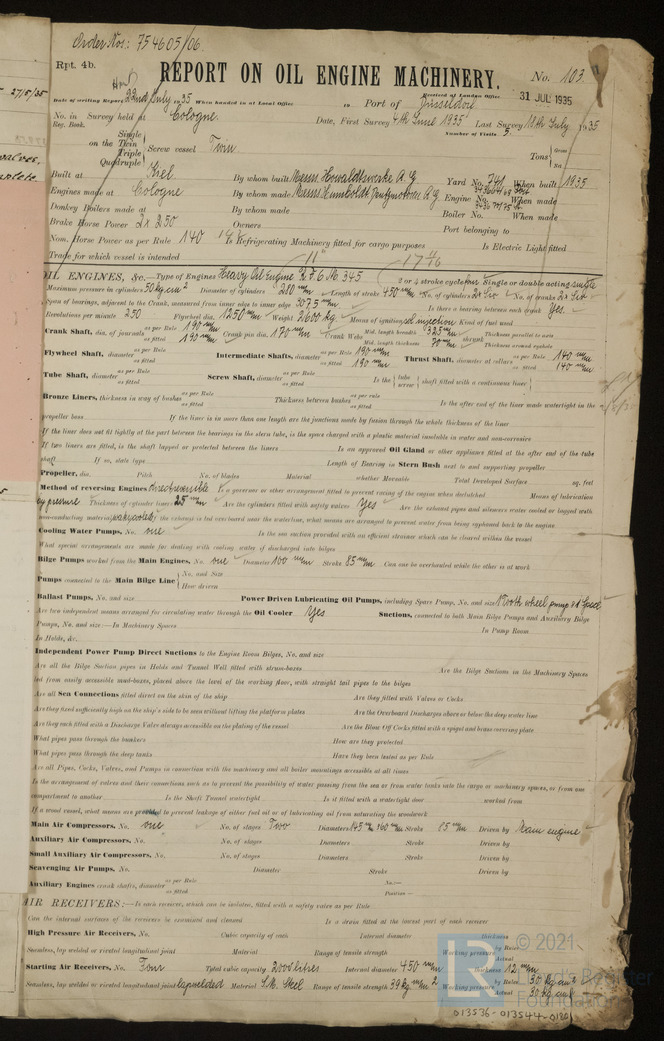 Order Nos: 754605/06
Rpt. 4b.
REPORT ON OIL ENGINE MACHINERY.
No. 103
27/5/35
Received at London Office 31 JUL 1935
Date of writing Report 22nd July 1935 When handed in at Local Office 19 Port of Düsseldorf
No. in Survey held at Cologne Date, First Survey 4th June 1935 Last Survey 11th July 1935
Reg. Book. Number of Visits 5
on the Single Twin Triple Quadruple Screw vessel Twin Tons Gross Net
Built at Kiel By whom built Messrs. Howaldtswerke A.G. Yard No. 741 When built 1935
Engines made at Cologne By whom made Messrs. Humboldt-Deutzmotoren A.G. Engine No. When made
Donkey Boilers made at By whom made Boiler No. When made
Brake Horse Power 2 x 250 Owners Port belonging to
Nom. Horse Power as per Rule 140 Is Refrigerating Machinery fitted for cargo purposes Is Electric Light fitted
Trade for which vessel is intended
OIL ENGINES, &c.—Type of Engines Heavy Oil Engine 2 or 4 stroke cycle four Single or double acting single
Maximum pressure in cylinders 50 kg cm² Diameter of cylinders 280 m/m Length of stroke 450 m/m No. of cylinders 2 x Six No. of cranks 2 x Six
Span of bearings, adjacent to the Crank, measured from inner edge to inner edge 307.5 m/m Is there a bearing between each crank Yes.
Revolutions per minute 250 Flywheel dia. 1250 m/m Weight 2600 kg Means of ignition sol. injection Kind of fuel used
Crank Shaft, dia. of journals as per Rule 190 m/m as fitted 190 m/m Crank pin dia. 170 m/m Crank Webs Mid. length breadth 325 m/m Mid. length thickness 70 m/m Thickness parallel to axis shrunk Thickness around eyehole
Flywheel Shaft, diameter as per Rule as fitted Intermediate Shafts, diameter as per Rule 190 m/m as fitted 190 m/m Thrust Shaft, diameter at collars as per Rule 140 m/m as fitted 140 m/m
Tube Shaft, diameter as per Rule as fitted Screw Shaft, diameter as per Rule as fitted Is the tube screw shaft fitted with a continuous liner
Bronze Liners, thickness in way of bushes as per Rule as fitted Thickness between bushes as per rule as fitted Is the after end of the liner made watertight in the
propeller boss If the liner is in more than one length are the junctions made by fusion through the whole thickness of the liner
If the liner does not fit tightly at the part between the bearings in the stern tube, is the space charged with a plastic material insoluble in water and non-corrosive
If two liners are fitted, is the shaft lapped or protected between the liners Is an approved Oil Gland or other appliance fitted at the after end of the tube
shaft If so, state type Length of Bearing in Stern Bush next to and supporting propeller
Propeller, dia. Pitch No. of blades Material whether Moveable Total Developed Surface sq. feet
Method of reversing Engines direct reversible Is a governor or other arrangement fitted to prevent racing of the engine when declutched Means of lubrication
by pressure Thickness of cylinder liners 25 m/m Are the cylinders fitted with safety valves Yes Are the exhaust pipes and silencers water cooled or lagged with
non-conducting material water cooled If the exhaust is led overboard near the waterline, what means are arranged to prevent water from being syphoned back to the engine
Cooling Water Pumps, No. one Is the sea suction provided with an efficient strainer which can be cleared within the vessel
What special arrangements are made for dealing with cooling water if discharged into bilges
Bilge Pumps worked from the Main Engines, No. one Diameter 100 m/m Stroke 85 m/m Can one be overhauled while the other is at work
Pumps connected to the Main Bilge Line No. and Size
How driven
Ballast Pumps, No. and size Power Driven Lubricating Oil Pumps, including Spare Pump, No. and size 1 Tooth wheel pump
Are two independent means arranged for circulating water through the Oil Cooler Yes Suctions, connected to both Main Bilge Pumps and Auxiliary Bilge
Pumps, No. and size:—In Machinery Spaces In Pump Room
In Holds, &c.
Independent Power Pump Direct Suctions to the Engine Room Bilges, No. and size
Are all the Bilge Suction pipes in Holds and Tunnel Well fitted with strum-boxes Are the Bilge Suctions in the Machinery Spaces
led from easily accessible mud-boxes, placed above the level of the working floor, with straight tail pipes to the bilges
Are all Sea Connections fitted direct on the skin of the ship Are they fitted with Valves or Cocks
Are they fixed sufficiently high on the ship's side to be seen without lifting the platform plates Are the Overboard Discharges above or below the deep water line
Are they each fitted with a Discharge Valve always accessible on the plating of the vessel Are the Blow Off Cocks fitted with a spigot and brass covering plate
What pipes pass through the bunkers How are they protected
What pipes pass through the deep tanks Have they been tested as per Rule
Are all Pipes, Cocks, Valves, and Pumps in connection with the machinery and all boiler mountings accessible at all times
Is the arrangement of valves and their connections such as to prevent the possibility of water passing from the sea or from water tanks into the cargo or machinery spaces, or from one
compartment to another Is the Shaft Tunnel watertight Is it fitted with a watertight door worked from
If a wood vessel, what means are provided to prevent leakage of either fuel oil or of lubricating oil from saturating the woodwork
Main Air Compressors, No. one No. of stages Two Diameters 145 m/m 160 m/m Stroke 85 m/m Driven by Main engine
Auxiliary Air Compressors, No. No. of stages Diameters Stroke Driven by
Small Auxiliary Air Compressors, No. No. of stages Diameters Stroke Driven by
Scavenging Air Pumps, No. Diameter Stroke Driven by
Auxiliary Engines crank shafts, diameter as per Rule as fitted No. Position
AIR RECEIVERS:—Is each receiver, which can be isolated, fitted with a safety valve as per Rule
Can the internal surfaces of the receivers be examined and cleaned Is a drain fitted at the lowest part of each receiver
High Pressure Air Receivers, No. Cubic capacity of each Internal diameter thickness
Seamless, lap welded or riveted longitudinal joint Material Range of tensile strength Working pressure by Rules Actual
Starting Air Receivers, No. Four Total cubic capacity 2000 litres Internal diameter 450 m/m thickness 12 m/m
Seamless, lap welded or riveted longitudinal joint lapwelded Material S.M. Steel Range of tensile strength 39 kg m/m² Working pressure by Rules 30 kg cm² Actual 30 kg cm²
© 2021
Lloyd's Register
Foundation
013536-013544-0180